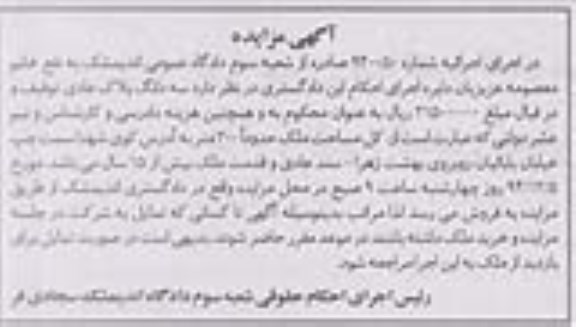 آگهی مزایده
در اجرای اجرائیه شماره صادره از شعبه سوم دادگاه عمومی اندیمشک به نفع خانم
معصومه عزیزیان دایره اجرای احکام این دادگستری در نظر دارد سه دانگ پلاک عادی توقیف و
در قبال مبلغ ریال به عنوان محکوم به و همچنین هزینه دادرسی و کارشناس و نیم
عشر دولتی که عبارت است از کل مساحت ملک حدوداً ۲۰۰ متر به آدرس کوی شهدا سمت چپ
خیابان روبروی بهشت زهرا - سند عادی و قدمت ملک بیش از ۱۵ سال می باشد مورخ
روز چهارشنبه ساعت ۹ صبح در محل مزایده واقع در دادگستری اندیمشک از طریق
مزایده به فروش می رسد لذا مراتب بدینوسیله آگهی تا کسانی که تمایل به شرکت در جلسه
مزایده و خرید ملک داشته باشند در موعد مقرر حاضر شوند بدیهی است در صورت تمایل برای
بازدید از ملک به این اجرا مراجعه شود.
رئیس اجرای احکام حقوقی شعبه سوم دادگاه اندیمشک سجادی فر